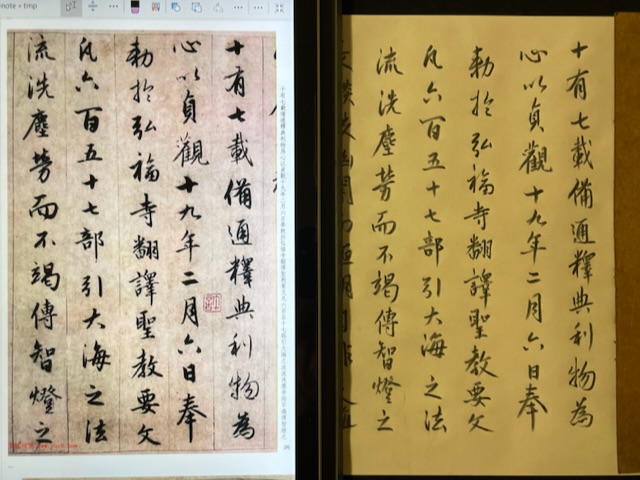 note » tmp
十有七載備通釋典利物為
心以貞觀十九年二月六日奉
勅於弘福寺翻譯聖教要文
凡六百五十七部引大海之法
流洗塵勞而不竭傳智燈之
十有七載備通釋典利物為
心以貞觀十九年二月六日奉
勅於弘福寺翻譯聖教要文
凡六百五十七部引大海之法
流洗塵勞而不竭傳智燈之